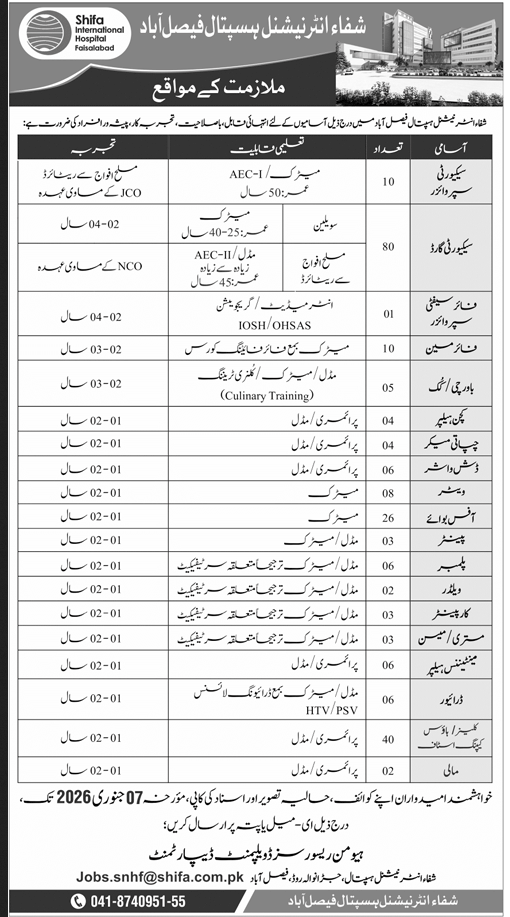 Shifa
International
Hospital
Faisalabad
شفاء انٹرنیشنل ہسپتال فیصل آباد
ملازمت کے مواقع
شفاء انٹرنیشنل ہسپتال فیصل آباد میں درج ذیل آسامیوں کے لئے انتہائی قابل، باصلاحیت، تجربہ کار، پیشہ ور افراد کی ضرورت ہے:
آسامی تعداد تعلیمی قابلیت تجربہ
سیکیورٹی سپروائزر 10 میٹرک/AEC-I عمر:50 سال مسلح افواج سے ریٹائرڈ JCO کے مساوی عہدہ
سیکیورٹی گارڈ 80 سویلین میٹرک عمر:25-40 سال 02-04 سال
مسلح افواج سے ریٹائرڈ مڈل/AEC-II زیادہ سے زیادہ عمر:45 سال NCO کے مساوی عہدہ
فائر سیفٹی سپروائزر 01 انٹرمیڈیٹ/گریجویشن IOSH/OHSAS 02-04 سال
فائر مین 10 میٹرک بمع فائر فائیٹنگ کورس 02-03 سال
باورچی/کک 05 مڈل/میٹرک/کلنری ٹریننگ (Culinary Training) 02-03 سال
کچن ہیلپر 04 پرائمری/مڈل 01-02 سال
چپاتی میکر 04 پرائمری/مڈل 01-02 سال
ڈش واشر 06 پرائمری/مڈل 01-02 سال
ویٹر 08 میٹرک 01-02 سال
آفس بوائے 26 میٹرک 01-02 سال
پینٹر 03 مڈل/میٹرک 01-02 سال
پلمبر 06 مڈل/میٹرک ترجیحاً متعلقہ سرٹیفیکیٹ 01-02 سال
ویلڈر 02 مڈل/میٹرک ترجیحاً متعلقہ سرٹیفیکیٹ 01-02 سال
کارپینٹر 03 مڈل/میٹرک ترجیحاً متعلقہ سرٹیفیکیٹ 01-02 سال
مستری/میسن 03 مڈل/میٹرک ترجیحاً متعلقہ سرٹیفیکیٹ 01-02 سال
مینٹیننس ہیلپر 06 پرائمری/مڈل 01-02 سال
ڈرائیور 06 مڈل/میٹرک بمع ڈرائیونگ لائسنس HTV/PSV 01-02 سال
کلینر/ہاؤس کیپنگ اسٹاف 40 پرائمری/مڈل 01-02 سال
مالی 02 پرائمری/مڈل 01-02 سال
خواہشمند امیدواران اپنے کوائف، حالیہ تصویر اور اسناد کی کاپی، مؤرخہ 07 جنوری 2026 تک،
درج ذیل ای-میل یا پتہ پر ارسال کریں؛
ہیومن ریسورسز ڈویلپمنٹ ڈیپارٹمنٹ
شفاء انٹرنیشنل ہسپتال، جڑانوالہ روڈ، فیصل آباد Jobs.snhf@shifa.com.pk
شفاء انٹرنیشنل ہسپتال فیصل آباد 041-8740951-55